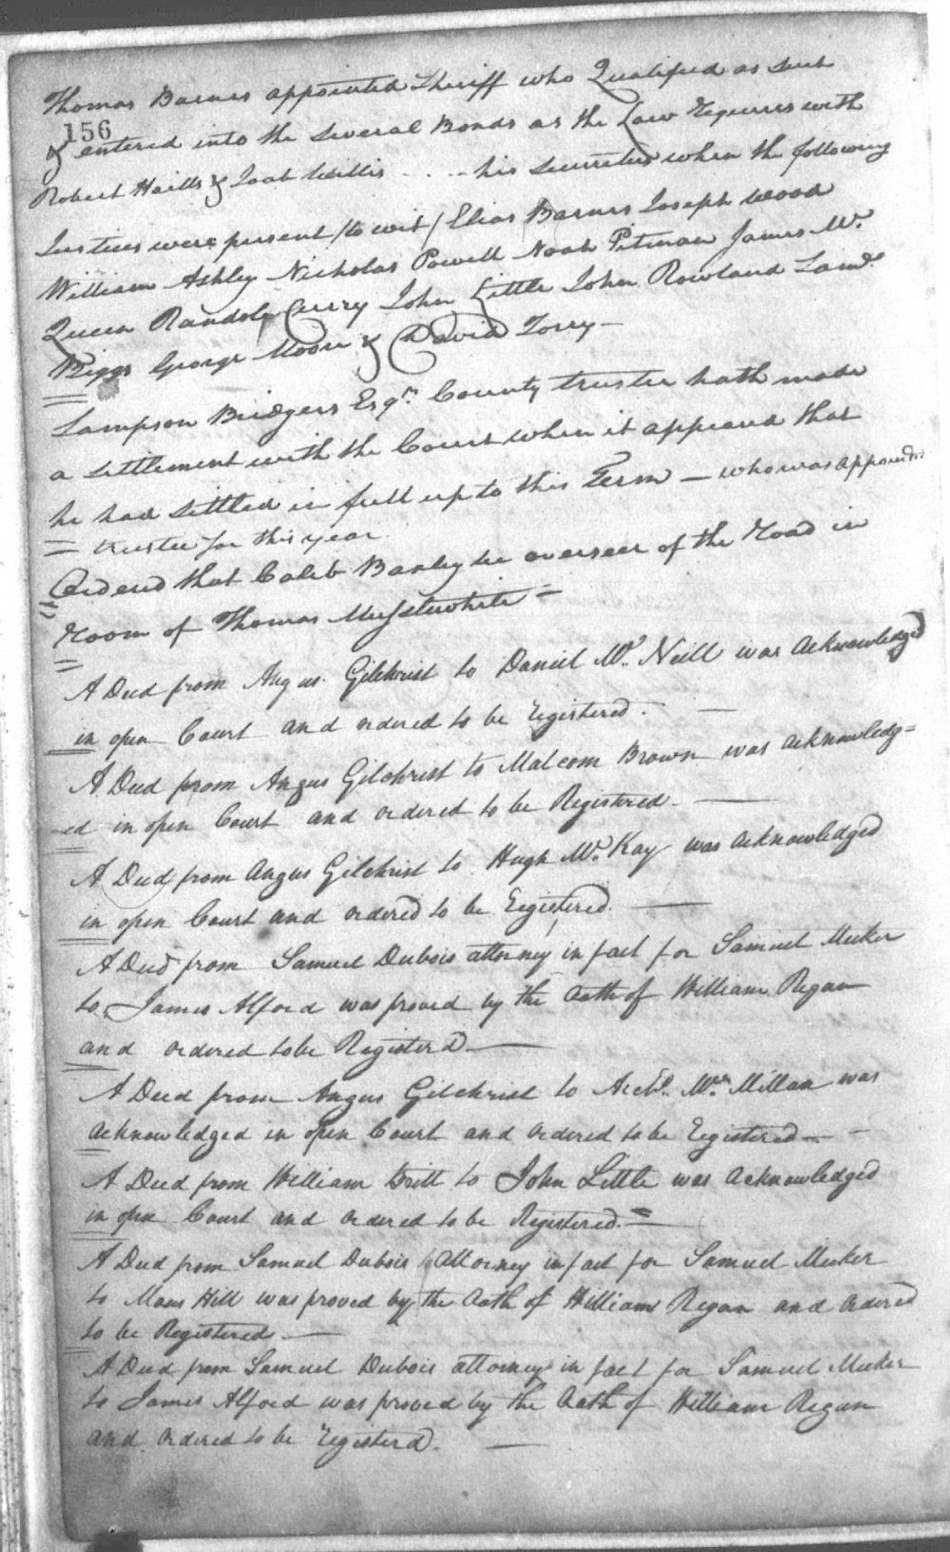 Thomas Barnes appointed Sheriff who Qualified as such
156
& entered into the several Bonds as the Law requires with
Robert Haills & Joab Willis . . . . his securities when the following
Justices were present /to wit/ Elias Barnes Joseph Wood
William Ashley Nicholas Powell Noah Pitman James Mc
Queen Randolph Currey John Little John Rowland
Biggs George Moore & David Torry —
Sampson Bridgers Esqr. County trustee hath made
a settlement with the Court when it appeared that
he had settled in full up to this Term — who was appointed
trustee for this year.
Ordered that Caleb Baxley be overseer of the Road in
Room of Thomas Musselwhite —
A Deed from Angus Gilchrist to Daniel Mc. Neill was acknowledged
in open Court and ordered to be registered. —
A Deed from Angus Gilchrist to Malcom Brown was acknowledg=
ed in open Court and ordered to be Registered. —
A Deed from Angus Gilchrist to Hugh Mc. Kay was acknowledged
in open Court and ordered to be registered. —
A Deed from Samuel Dubois attorney in fact for Samuel Meeker
to James Alford was proved by the Oath of William Regan
and ordered to be Registerd —
A Deed from Angus Gilchrist to Archd. Mc. Millan was
acknowledged in open Court and ordered to be registered —
A Deed from William Britt to John Little was acknowledged
in open Court and ordered to be Registered. —
A Deed from Samuel Dubois attorney in fact for Samuel Meeker
to Hill was proved by the Oath of William Regan and ordered
to be Registered —
A Deed from Samuel Dubois attorney in fact for Samuel Meeker
to James Alford was proved by the Oath of William Regan
and ordered to be registerd. —